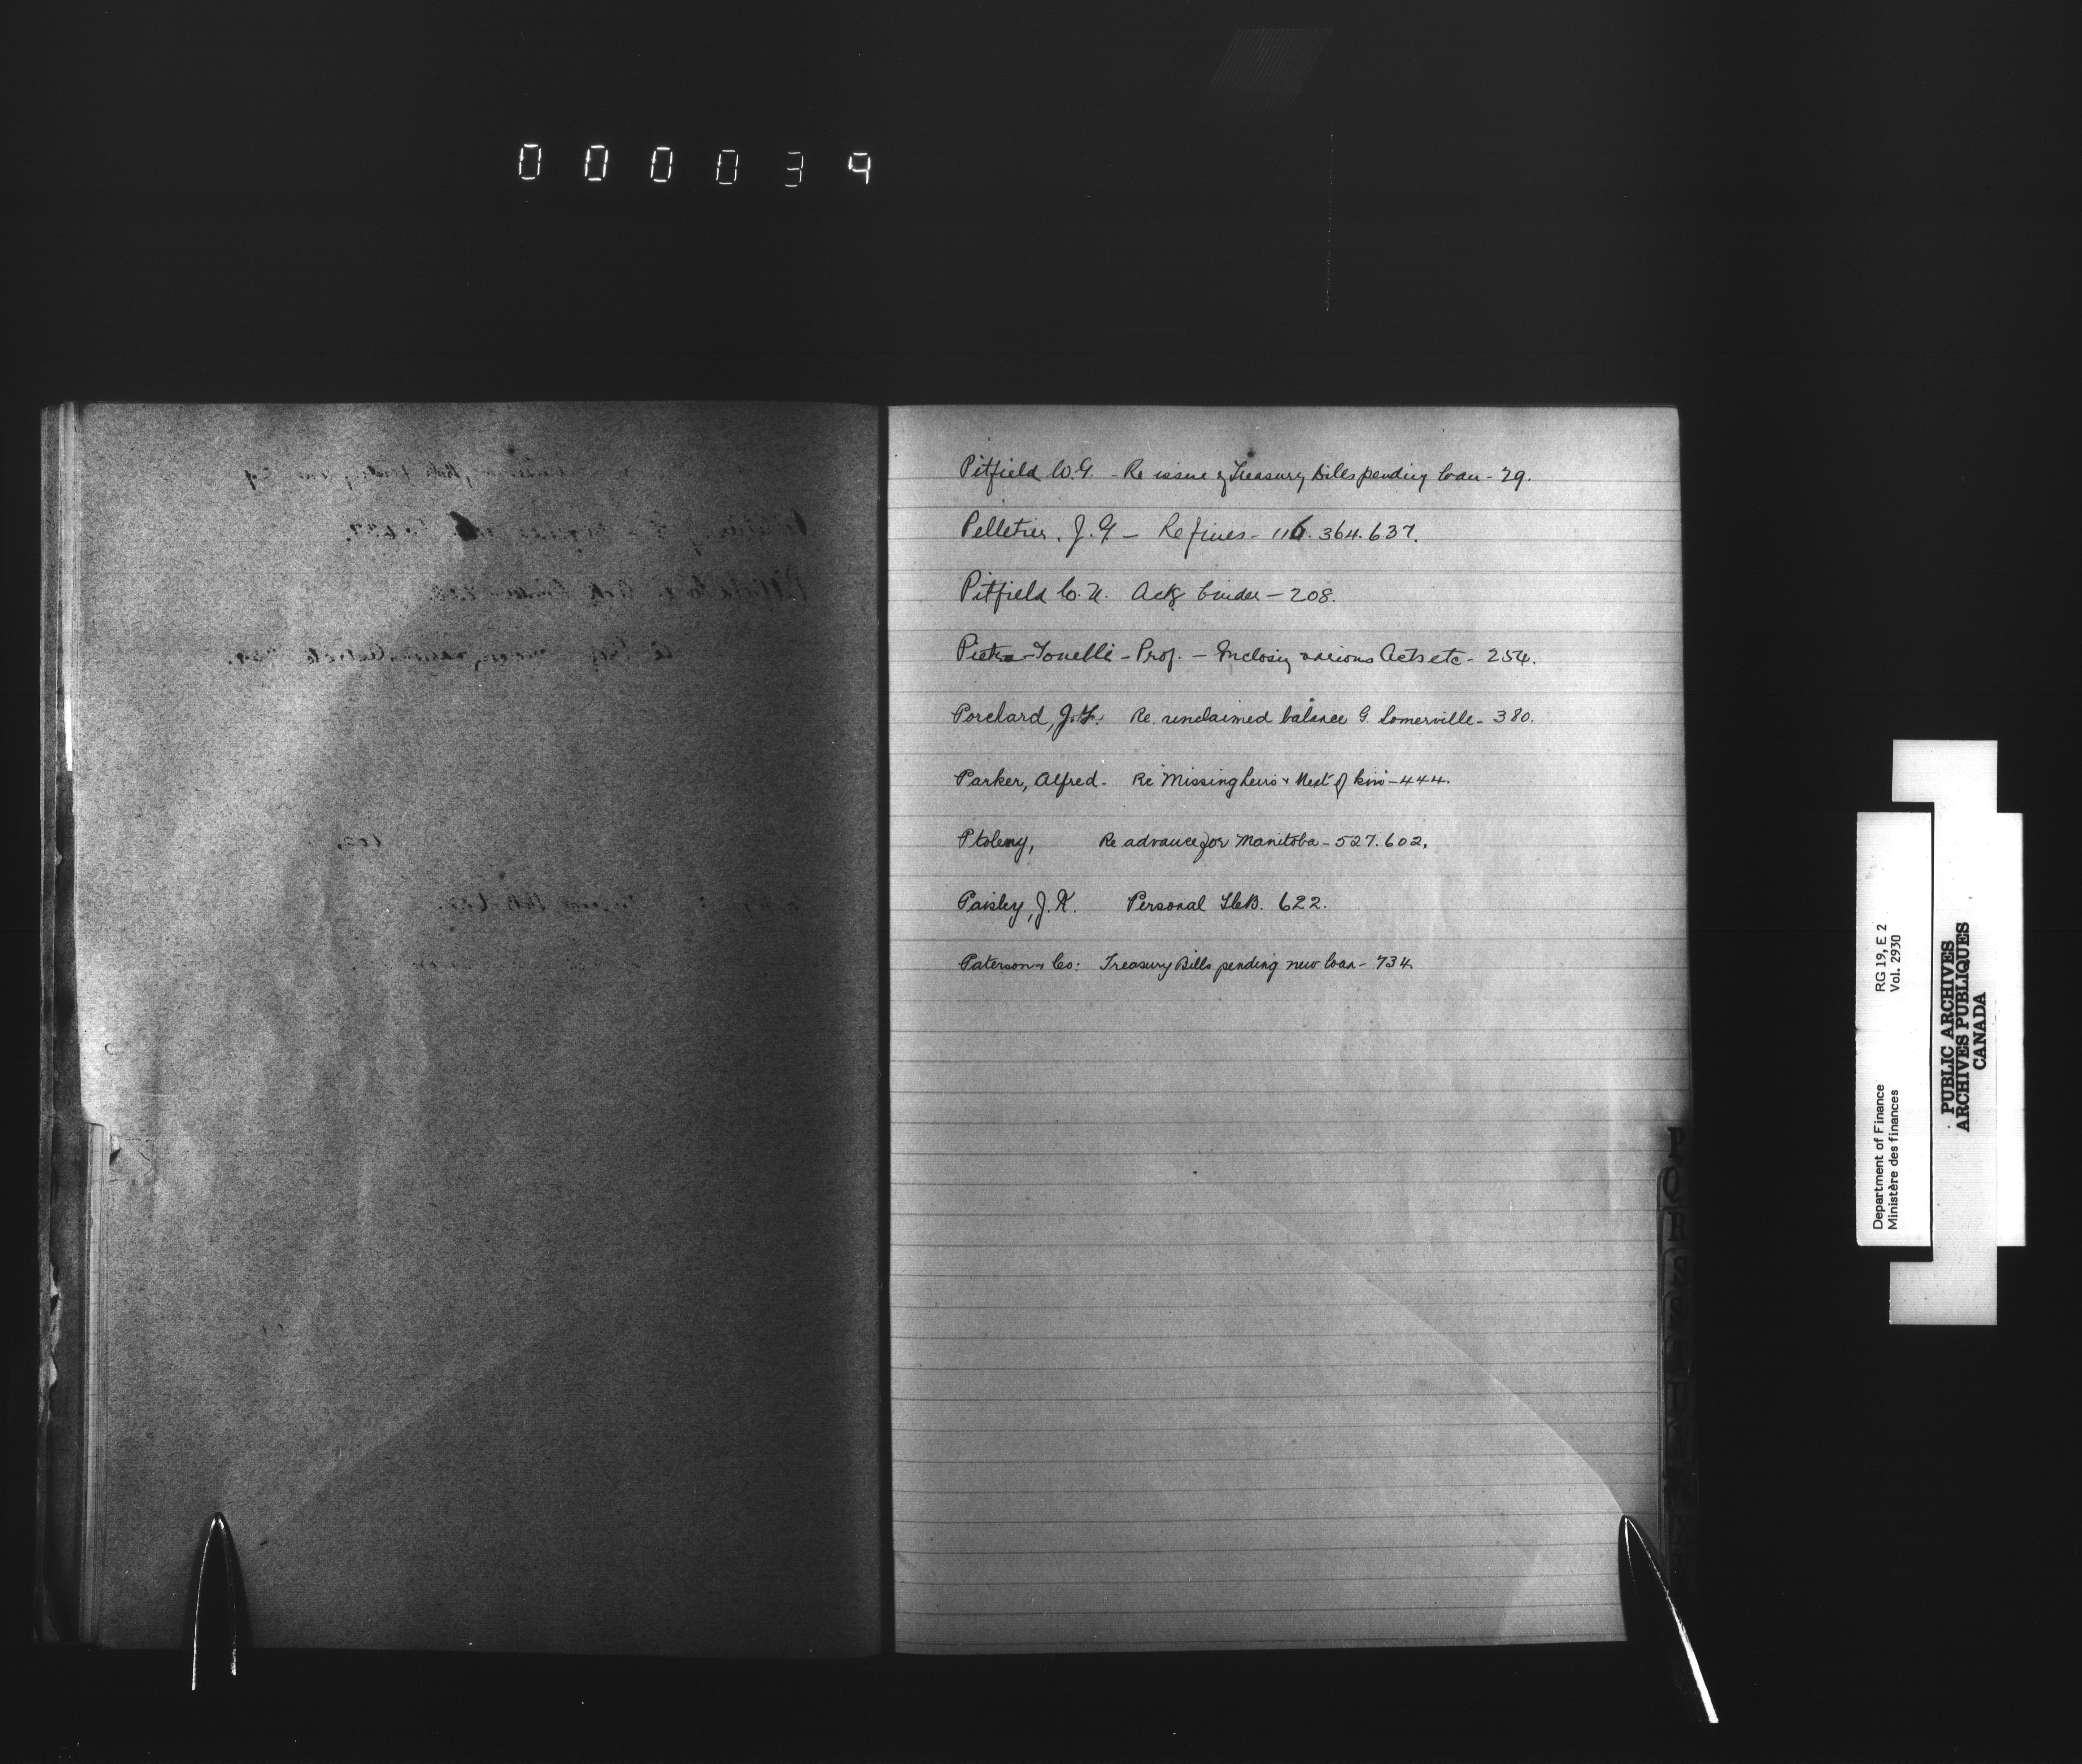 000039
Pitfield W.G. - Re issue of Treasury Bills pending loan - 29.
Pelletier, J.G. - Re fines - 116. 364. 637.
Pitfield Ack binder - 208.
Pietra-Tonelli - Prof. - Inclosing various Acts etc - 254.
Porchard, J.F. Re. unclaimed balance G. Somerville - 380.
Parker, Alfred. Re Missing heirs & Next of kin - 444.
Ptolemy, Re advance for Manitoba - 527. 602.
Paisley, J.K. Personal 622.
Paterson & Co: Treasury Bills pending new loan - 734.
P
Q
R
S
Department of Finance RG 19, E 2
Ministère des finances Vol. 2930
PUBLIC ARCHIVES
ARCHIVES PUBLIQUES
CANADA